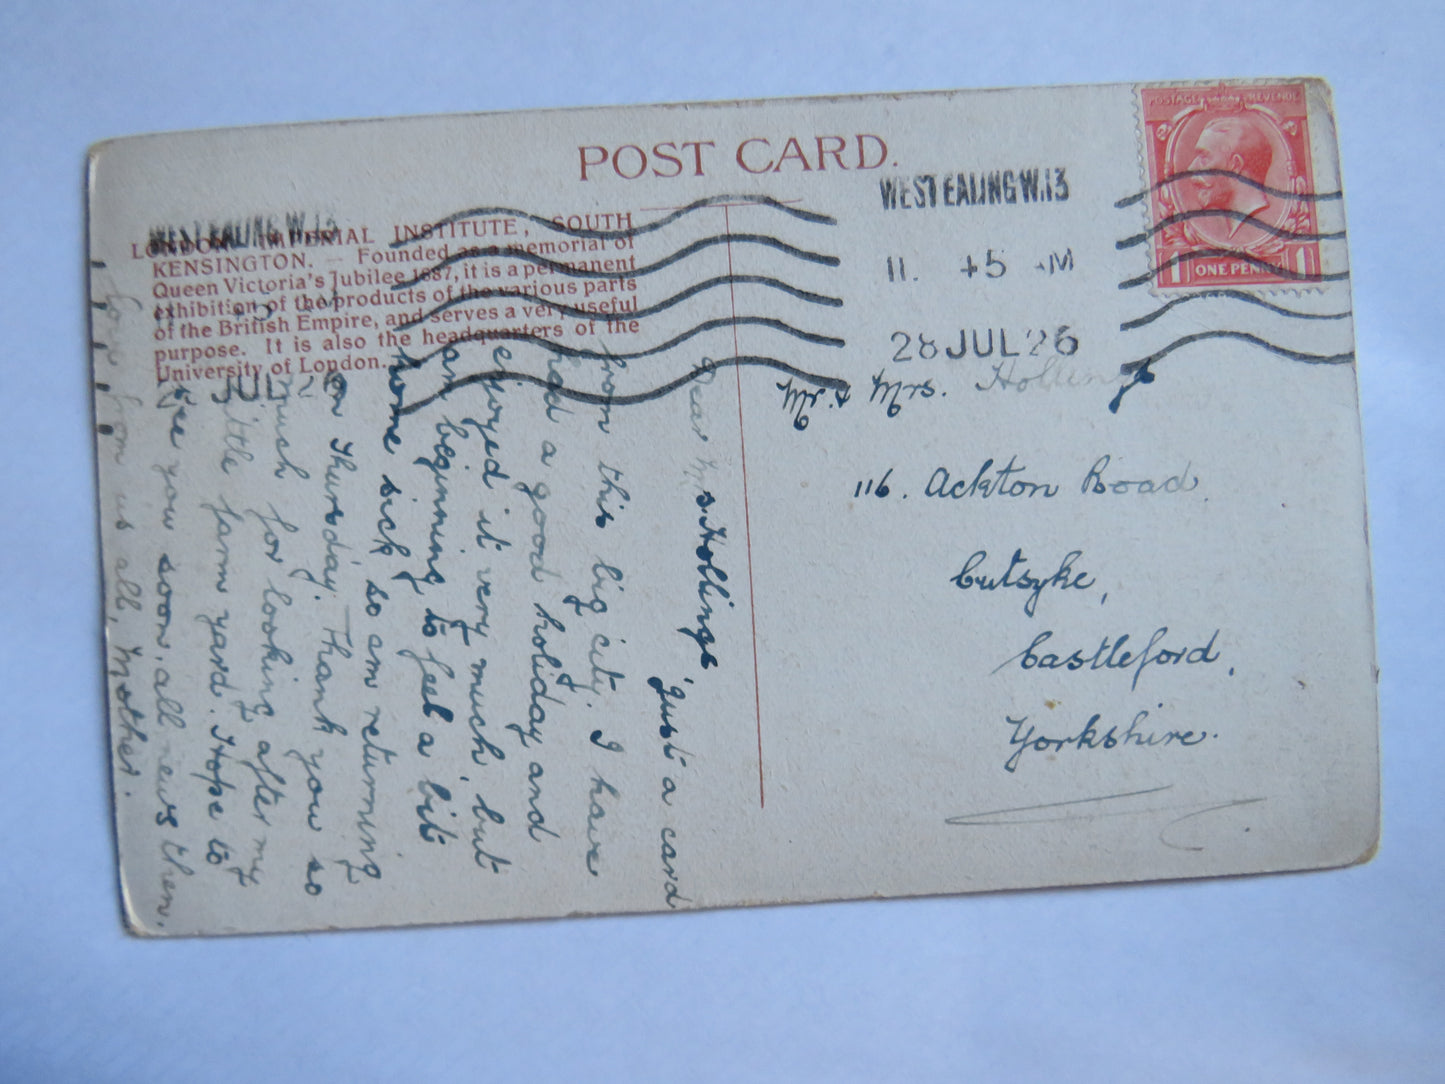 POST CARD.
LONDON. IMPERIAL INSTITUTE, SOUTH
KENSINGTON. — Founded as a memorial of
Queen Victoria's Jubilee 1887, it is a permanent
exhibition of the products of the various parts
of the British Empire, and serves a very useful
purpose. It is also the headquarters of the
University of London.
WEST EALING W.13
JUL 26
WEST EALING W.13
11. 45 AM
28 JUL 26
POSTAGE REVENUE
1 ONE PENNY 1
Mr. & Mrs. Hollings
116. Ackton Road.
Cutsyke,
Castleford,
Yorkshire.
Dear Mrs. Hollings, just a card
from this big city. I have
had a good holiday and
enjoyed it very much, but
am beginning to feel a bit
home sick so am returning
on Thursday. Thank you so
much for looking after my
little farm yard. Hope to
see you soon, all news then.
Love from us all, Mother.